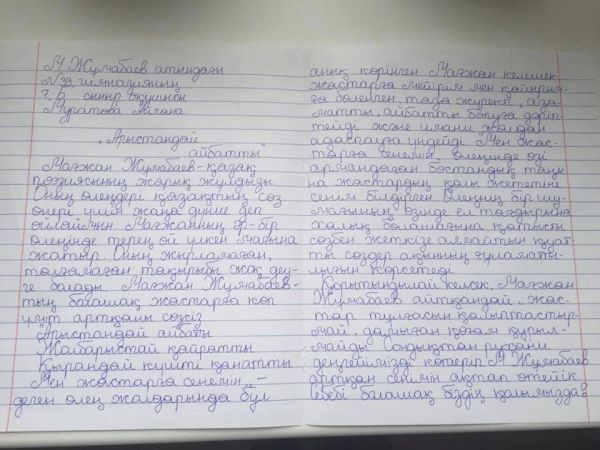 М. Жумабаев атындағы
№39 гимназияның
7 "Б" сынып оқушысы
Муратова Милана
"Арыстандай
айбатты"
Мағжан Жумабаев - қазақ
поэзиясының жарық жулдызы.
Оның өлеңдері қазақтың сөз
өнері үшін жаңа дүние деп
ойлаймын. Мағжанның әр-бір
өлеңінде терең ой үлкен мағына
жатыр. Оның жырламаған,
толғамаған тақырыбы жоқ деу-
ге болады. Мағжан Жумабаев-
тың болашақ жастарға көп
үміт артқаны сөзсіз
"Арыстандай айбатты
Жолбарыстай қайратты
Қырандай күшті қанатты
Мен жастарға сенемін" -
деген өлең жолдарында бұл
анық көрінген Мағжан келешек
жастарға мейірім мен қайырым-
ға бөленген, таза жүректі, аза-
матты, айбатты болуға дәріп-
тейді және имани жолдан
адаспауға үндейді. "Мен жас-
тарға сенемін" өлеңінде өзі
армандаған бостандық таңы-
на жастардың қолы жететіне
сенім білдірген Өлеңнің бір шу-
мағының өзінде ел тағдырына
халық болашағына қатысты
сөзбен жеткізе алмайтын қуат-
ты сөздер ақынның ғұламалы-
лығын көрсетеді
Қорытындылай келсек, Мағжан
Жумабаев айтқандай, жас-
тар тулғасын қалыптастыр-
май, дамыған қоғам құрыл-
майды Сондықтан рухани
деңгейімізді көтеріп М. Жумабаев
артқан сенімін ақтап өтейік
Себебі болашақ біздің қолымызда!